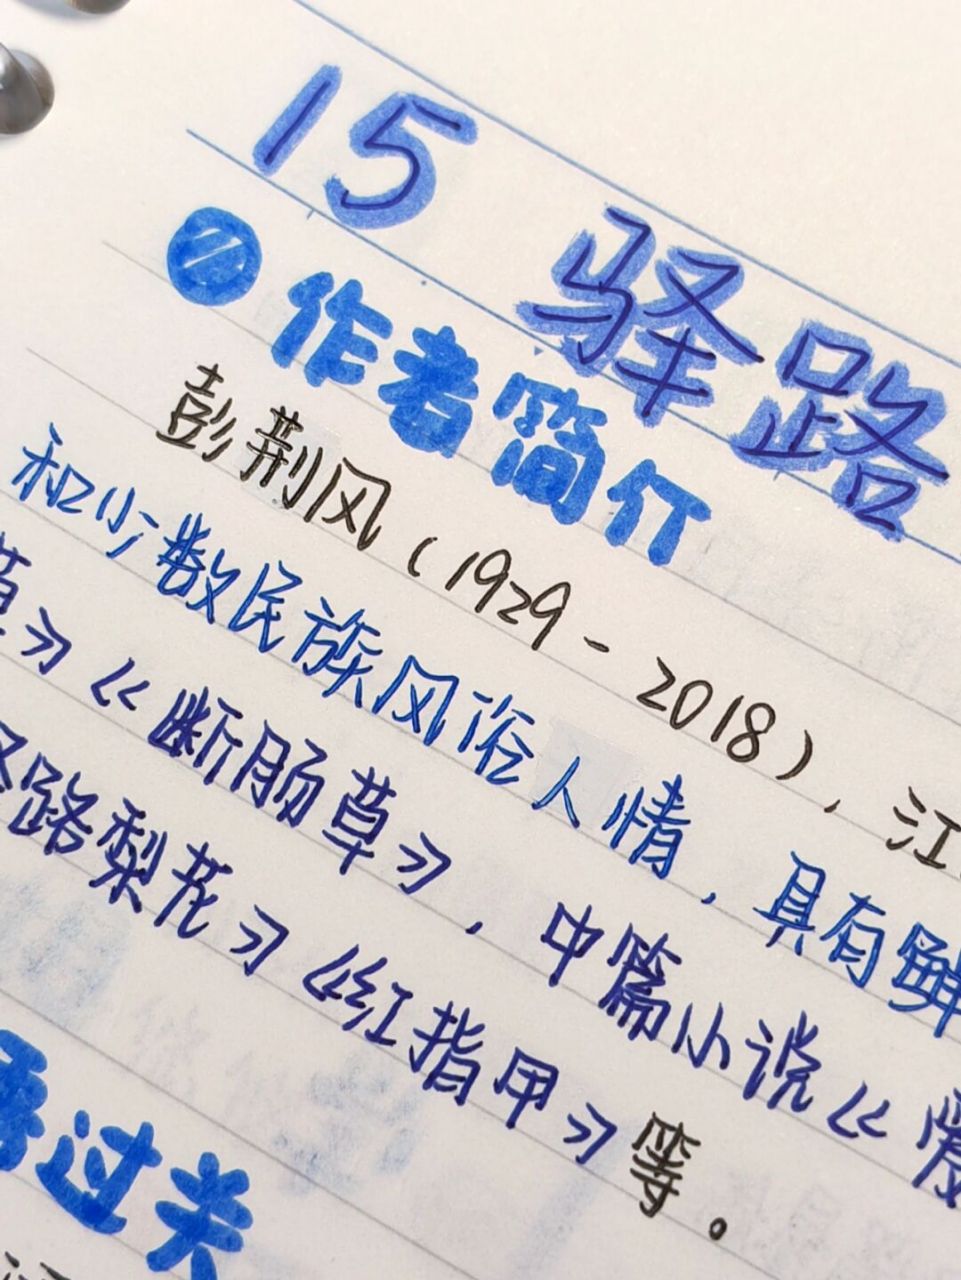 15 驿路
作者简介
彭荆风（1929-2018），江
和少数民族风俗人情，具有鲜
草》《断肠草》，中篇小说《爱
路梨花》《红指甲》等。
过关